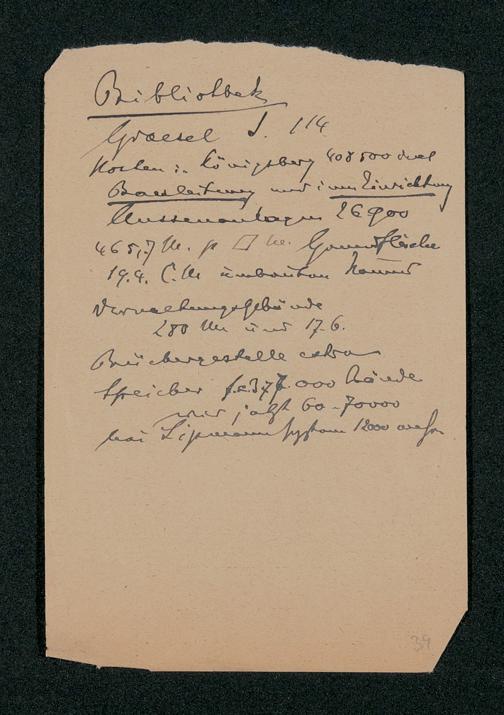 Bibliothek
Graesel S. 114
Kosten in Königsberg 408500 incl
Bauleitung und innere Einrichtung
Aussenanlagen 26900
465,7 M. p □ M. Grundfläche
19.4. C.M umbauten Raum
Verwaltungsgebäude
280 M und 17.6.
Büchergestelle extra
Speicher f. 377.000 Bände
wir jetzt 60-70000
bei Lipmann System 12000 mehr
39